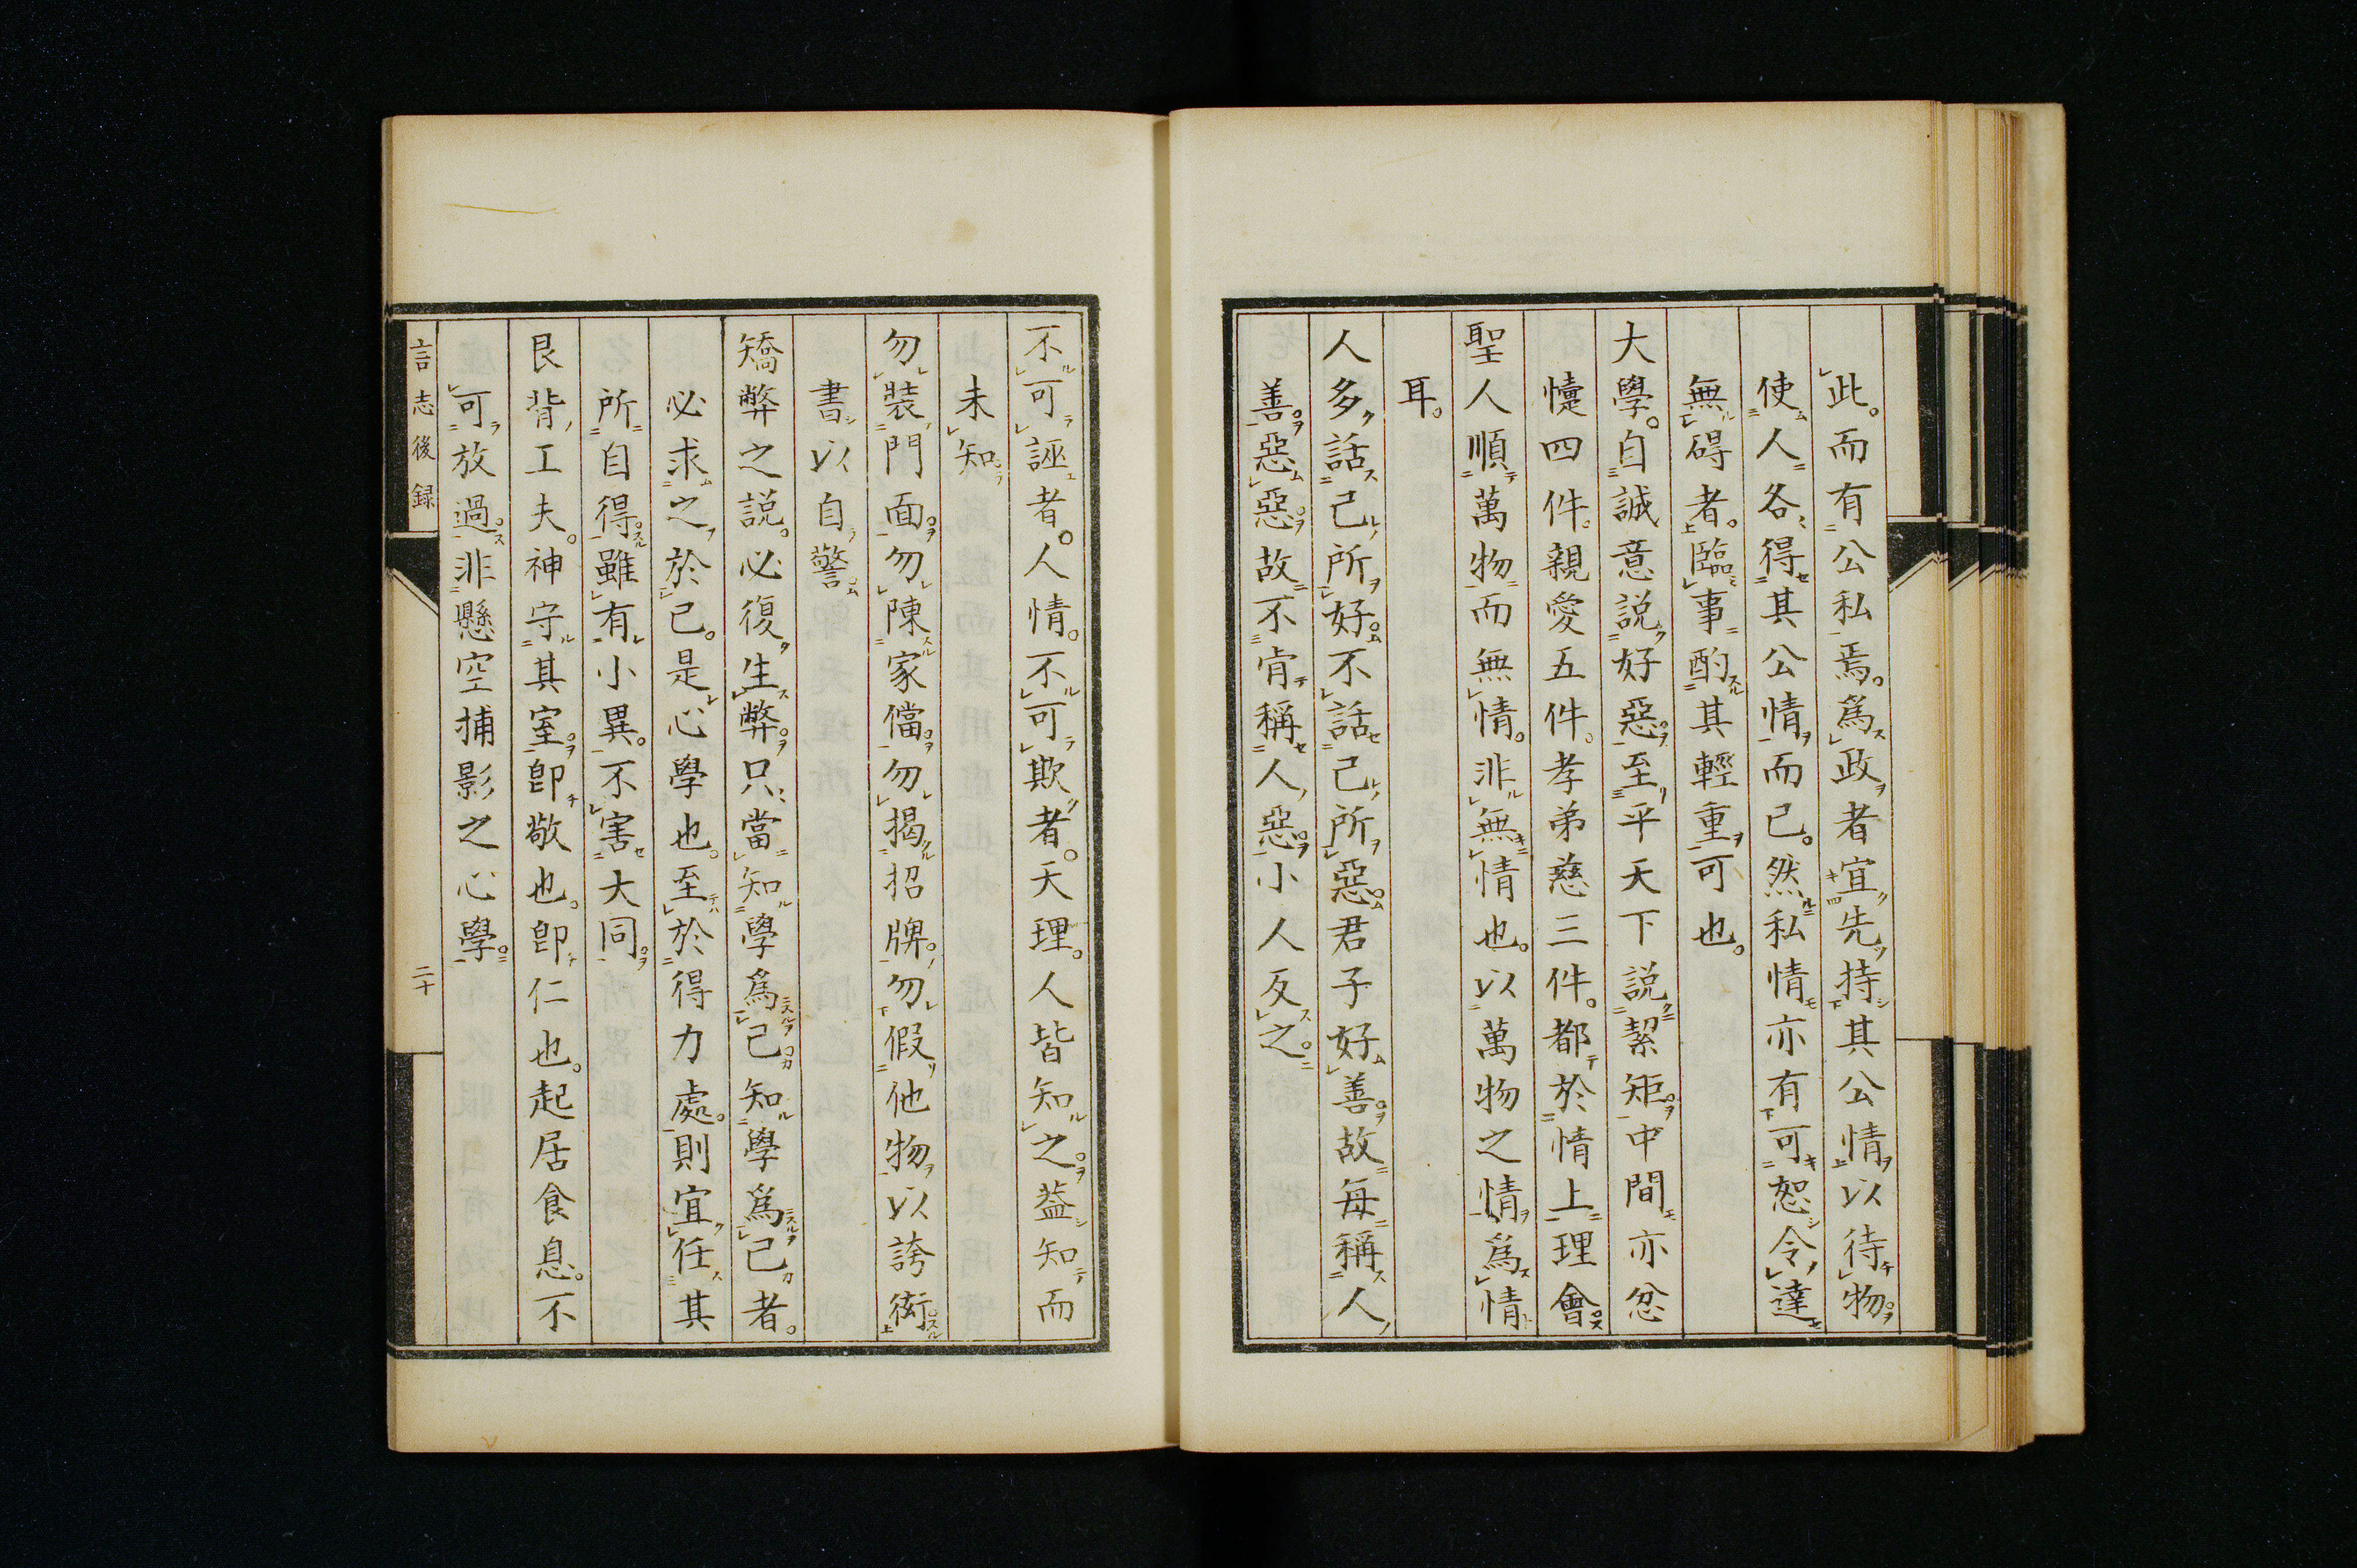 此。而有公私焉。爲政者宜先持其公情以待物。
使人各得其公情而已。然私情亦有可恕令達
無碍者。臨事酌其輕重可也。
大學。自誠意說好惡。至平天下說絜矩。中間亦忿
懥四件。親愛五件。孝弟慈三件。都於情上理會。
聖人順萬物而無情。非無情也。以萬物之情爲情
耳。
人多話己所好。不話己所惡。君子好善。故每稱人
善。惡惡。故不肯稱人惡。小人反之。
不可誣者。人情。不可欺者。天理。人皆知之。葢知而
未知。
勿裝門面。勿陳家儅。勿揭招牌。勿假他物以誇衒。
書以自警。
矯弊之説。必復生弊。只當知學爲己。知學爲己者。
必求之於己。是心學也。至於得力處。則宜任其
所自得。雖有小異。不害大同。
艮背工夫。神守其室。卽敬也。卽仁也。起居食息。不
可放過。非懸空捕影之心學。
言志後録
二十